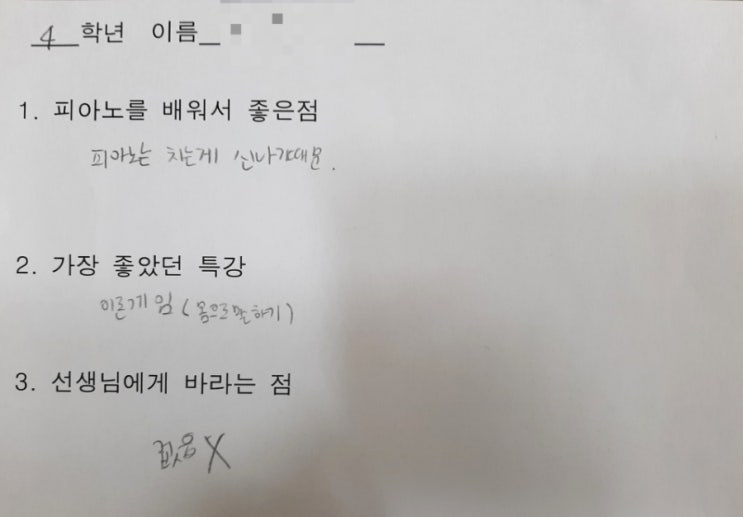 4 학년 이름
1. 피아노를 배워서 좋은점
피아노는 치는게 신나기때문.
2. 가장 좋았던 특강
이론게임 (몸으로말하기)
3. 선생님에게 바라는 점
없음 X